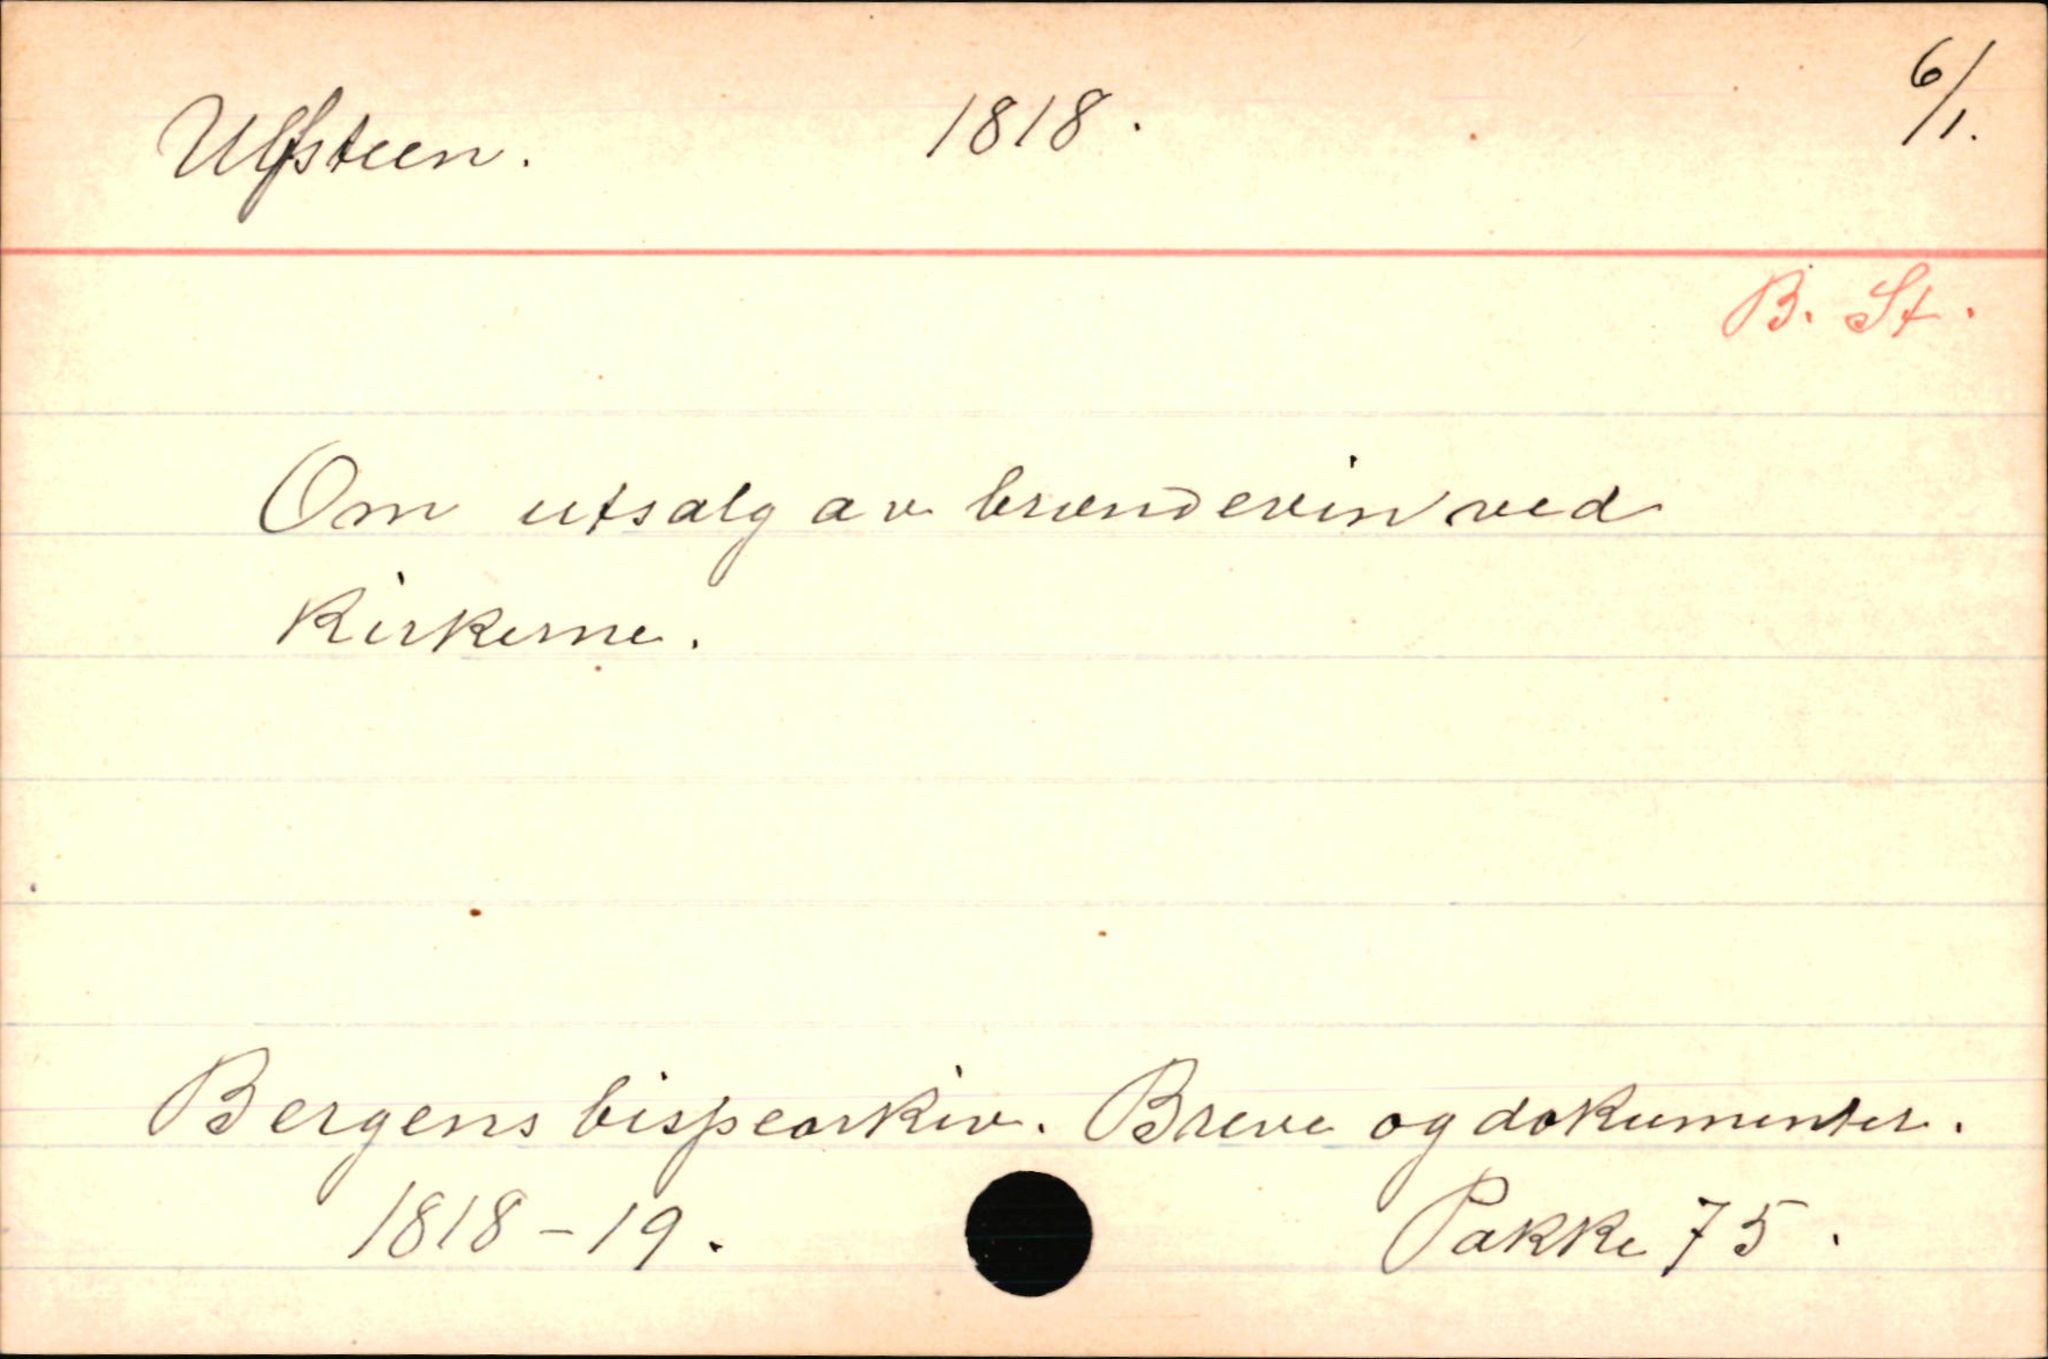 Ulfsteen. 1818. 6/1.
B. St.
Om utsalg av brændevin ved
Kirkerne.
Bergens bispearkiv. Breve og dokumenter.
1818-19. Pakke 75.